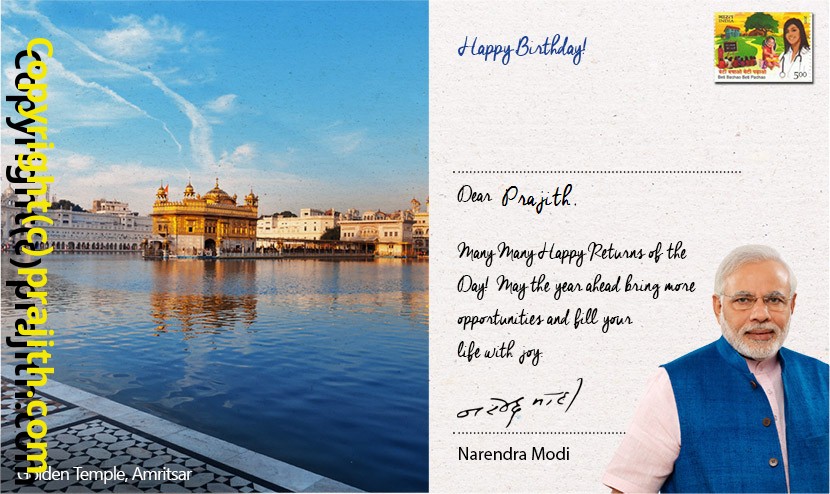 Copyright(c) prajith.com
Golden Temple, Amritsar
Happy Birthday!
INDIA
बेटी बचाओ बेटी पढ़ाओ
Beti Bachao Beti Padhao
500
Dear Prajith,
Many Many Happy Returns of the
Day! May the year ahead bring more
opportunities and fill your
life with joy.
Narendra Modi